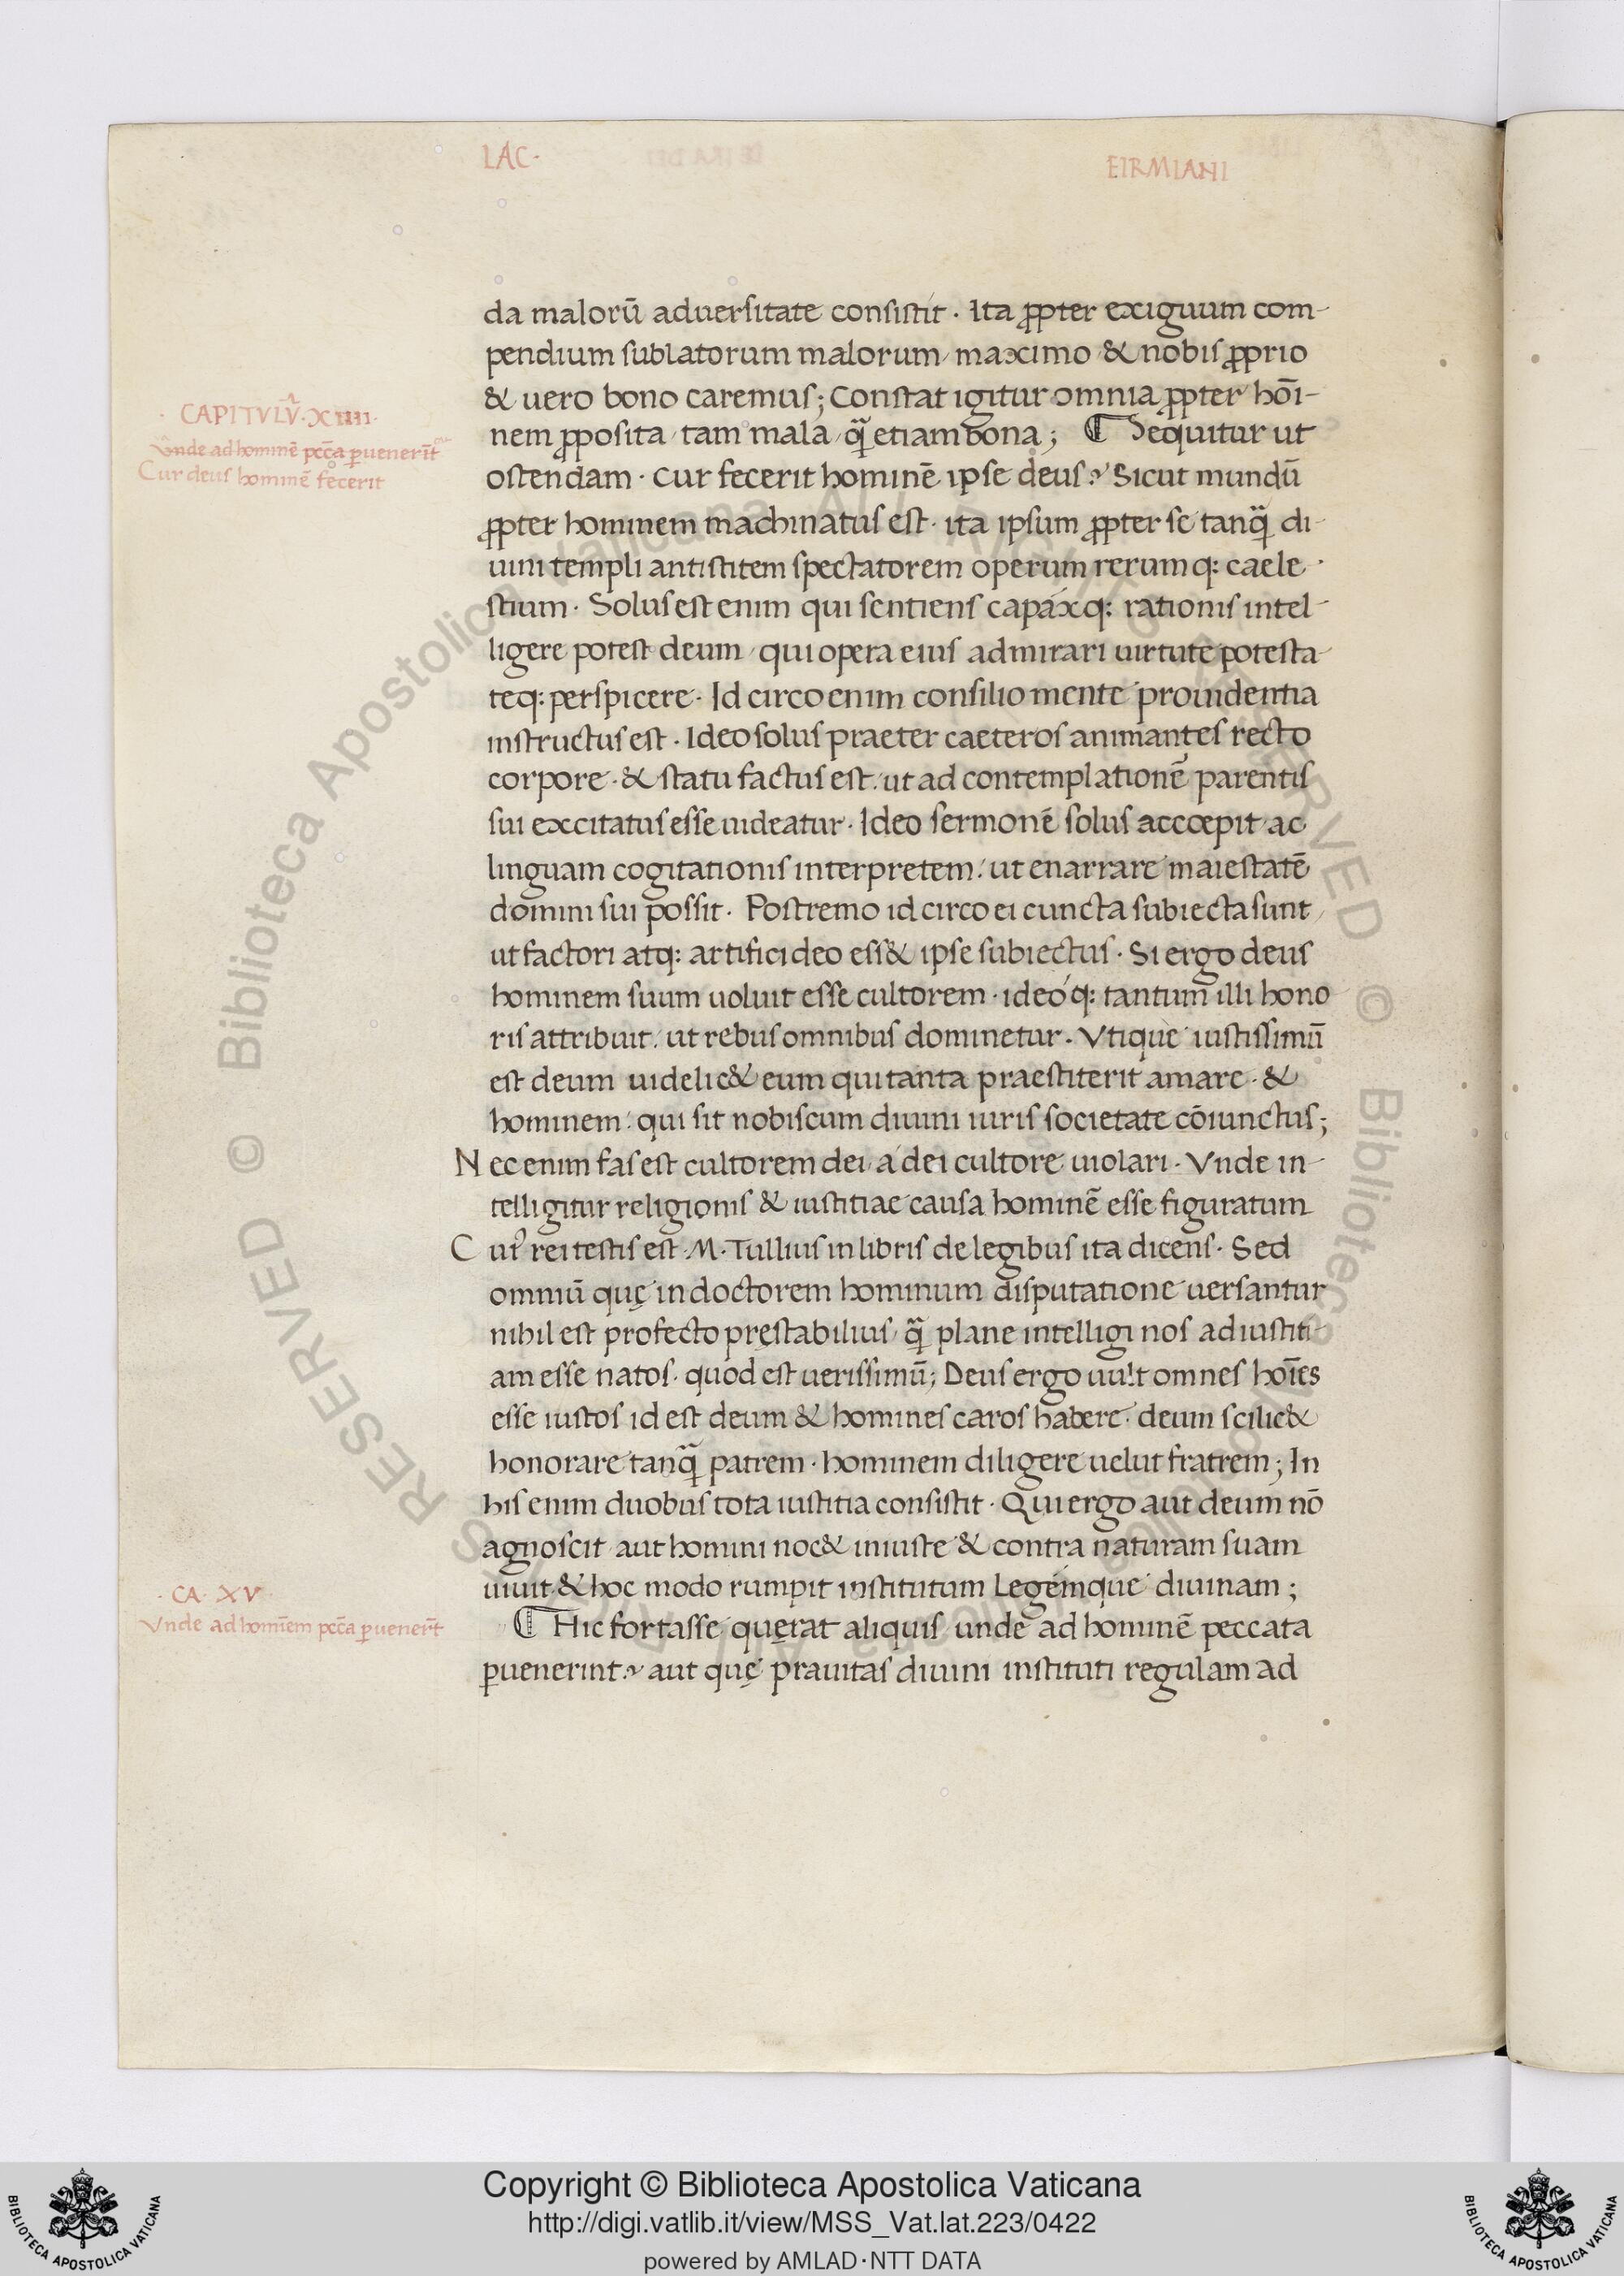 LAC·
EIRMIANI
da malorū aduersitate consistit · Ita ꝓpter exiguum com-
pendium sublatorum malorum / maximo & nobis ꝓprio
& uero bono caremus; Constat igitur omnia ꝓpter hōi-
· CAPITVLV̄ · XIIII ·
nem ꝓposita / tam mala / quā etiam bona; ¶ Sequitur ut
Vnde ad hominē pcc̄a ꝑuenerīt
Cur deus hominē fecerit
ostendam · cur fecerit hominē ipse deus? Sicut mundū
ꝓpter hominem machinatus est · ita ipsum ꝓpter se tanquā di-
uini templi antistitem spectatorem operum rerumq: caele-
stium · Solus est enim qui sentiens capáxq: rationis intel-
ligere potest deum / qui opera eius admirari uirtute potesta-
teq: perspicere · Id circo enim consilio mente prouidentia
instructus est · Ideo solus praeter caeteros animantes recto
corpore · & statu factus est / ut ad contemplationē parentis
sui excitatus esse uideatur · Ideo sermonē solus accœpit ac
linguam cogitationis interpretem / ut enarrare maiestatē
domini sui possit · Postremo id circo ei cuncta subiecta sunt /
ut factori atq: artifici deo ess& ipse subiectus · Si ergo deus
hominem suum uoluit esse cultorem · ideóq: tantum illi hono
ris attribuit / ut rebus omnibus dominetur · Vtique iustissimū
est deum uidelic& eum qui tanta praestiterit amare · &
hominem / qui sit nobiscum diuini iuris societate cōiunctus;
Nec enim fas est cultorem dei / á dei cultore uiolari · Vnde in-
telligitur religionis & iustitiae causa hominē esse figuratum
Cuiꝰ rei testis est · M · Tullius in libris de legibus ita dicens · Sed
omniū quę in doctorem hominum disputatione uersantur
nihil est profecto pręstabilius / quā plane intelligi nos ad iustiti-
am esse natos · quod est uerissimū; Deus ergo uult omnes hoīes
esse iustos id est deum & homines caros habere · deum scilic&
honorare tanquā patrem · hominem diligere uelut fratrem; In
his enim duobus tota iustitia consistit · Qui ergo aut deum nō
agnoscit aut homini noc& iniuste & contra naturam suam
uiuit & hoc modo rumpit institutum Legémque diuinam;
· CA · XV
Vnde ad homīem pcc̄a ꝑuenerīt
¶ Hic fortasse quęrat aliquis unde ad hominē peccata
ꝑuenerint? aut quę prauitas diuini instituti regulam ad
© Biblioteca Apostolica Vaticana ALL RIGHTS RESERVED
Copyright © Biblioteca Apostolica Vaticana
http://digi.vatlib.it/view/MSS_Vat.lat.223/0422
powered by AMLAD·NTT DATA
BIBLIOTECA APOSTOLICA VATICANA
BIBLIOTECA APOSTOLICA VATICANA